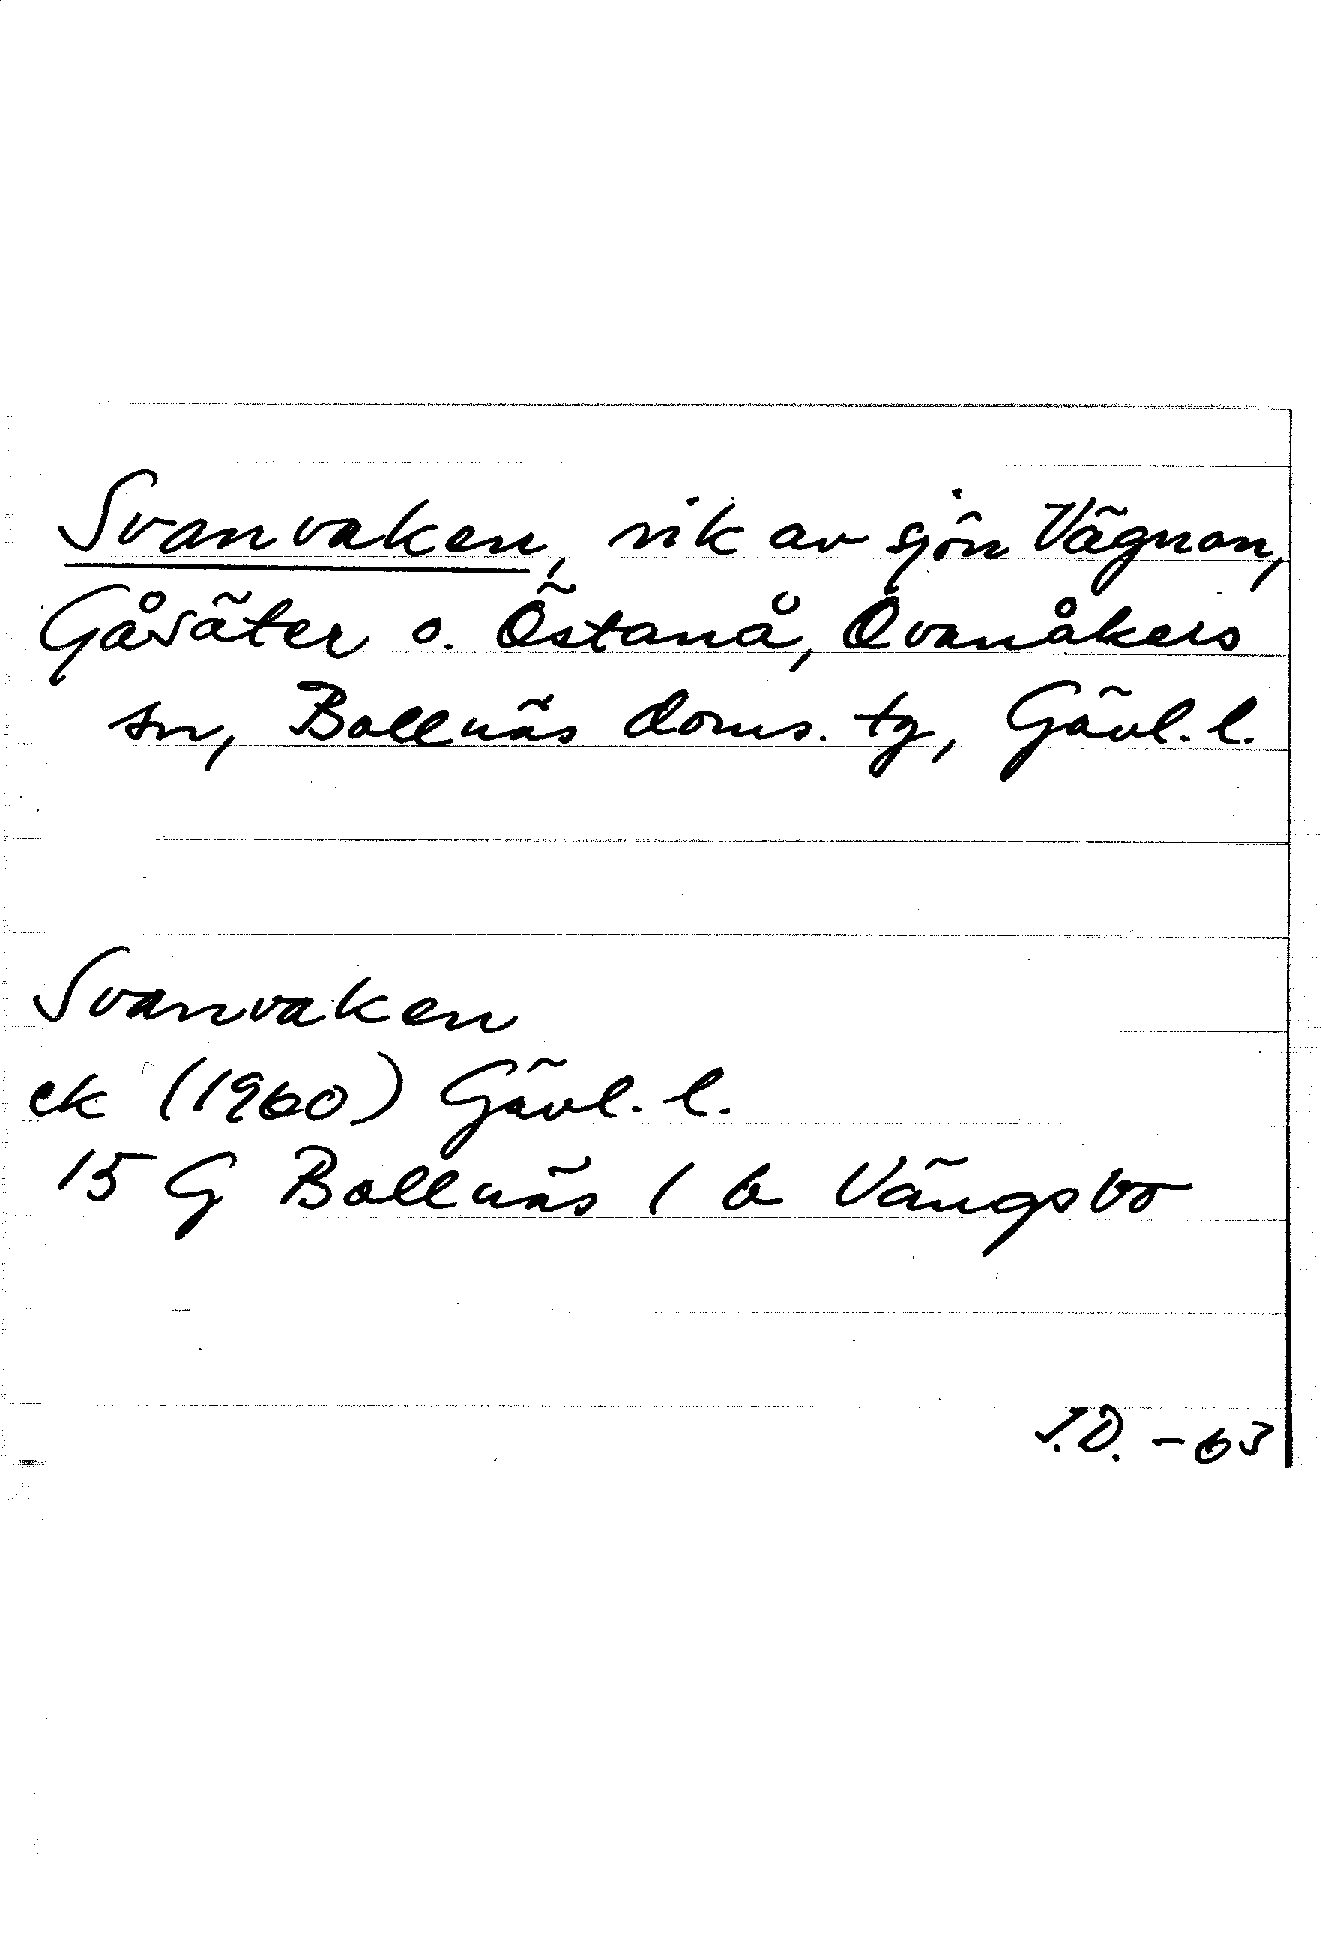 Svanvaken, vik av sjön Vägnan,
Gåsäter o. Östanå, Ovanåkers
sn, Bollnäs doms. tg, Gävl. l.
Svanvaken
ek (1960) Gävl. l.
15 G Bollnäs 1 b Vängsbo
J.D. - 63